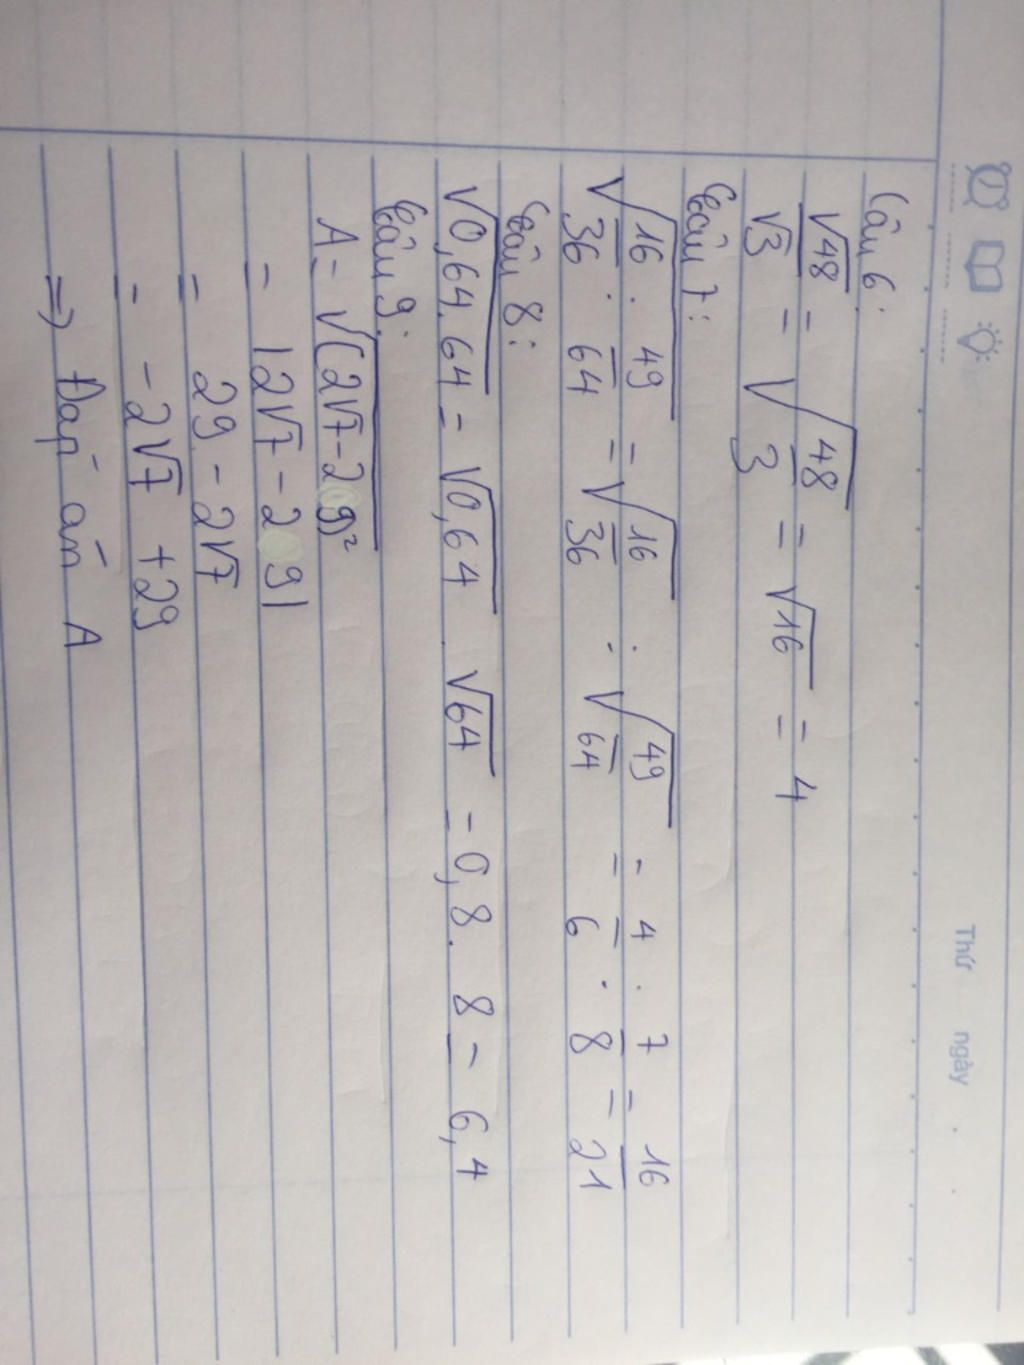 Thứ ngày
Câu 6:
√48/√3 = √(48/3) = √16 = 4
Câu 7:
√(16/36 . 49/64) = √(16/36) . √(49/64) = 4/6 . 7/8 = 16/21
Câu 8:
√0,64.64 = √0,64 . √64 = 0,8 . 8 = 6,4
Câu 9:
A = √(2√7-29)²
= |2√7-29|
= 29 - 2√7
= -2√7 + 29
=> Đáp án A